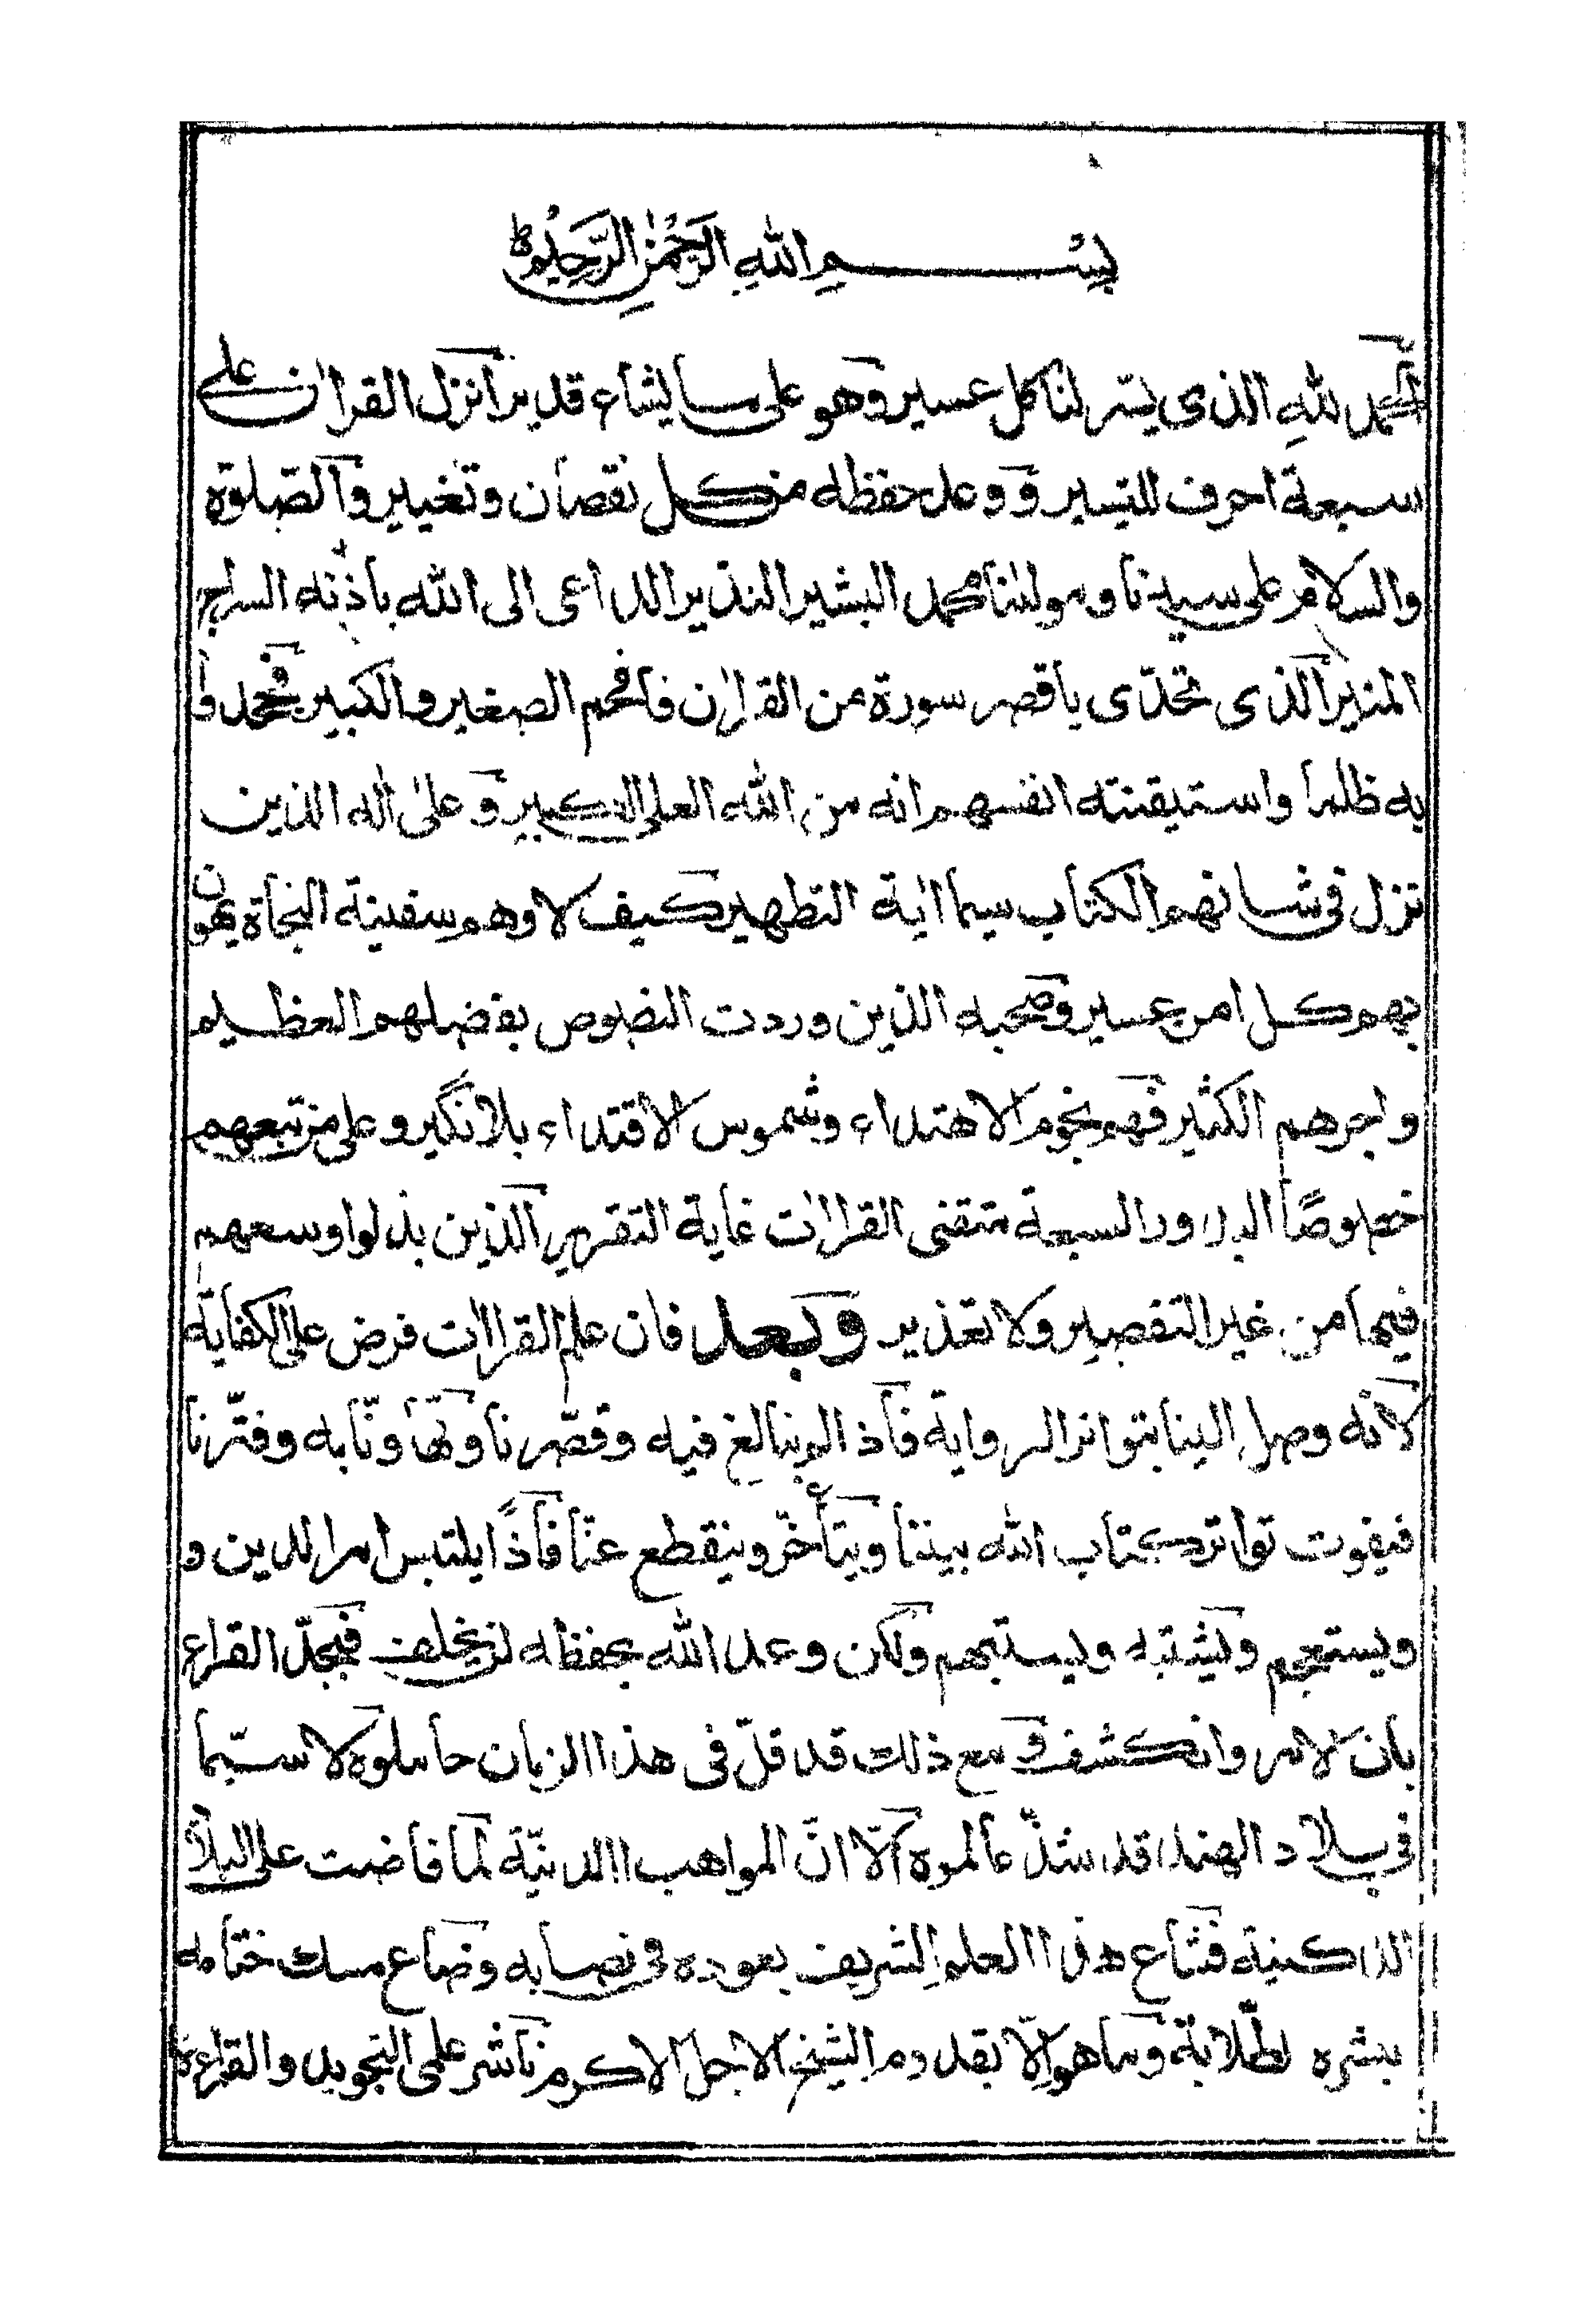 بسم الله الرحمن الرحيم
الحمد لله الذى يسر لنا كل عسير وهو على ما يشاء قدير انزل القراٰن على
سبعة احرف للتيسير و وعد حفظه من كل نقصان وتغيير والصّلوة
والسلام على سيدنا ومولٰنا محمد البشير النذير الداعى الى الله باذنه السراج
المنير الذى تحدّى باقصر سورة من القراٰن فافحم الصغير والكبير فجحدوا
به ظلما واستيقنته انفسهم انه من الله العلى الكبير وعلىٰ اٰله الذين
نزل فى شانهم الكتاب سيما اٰية التطهير كيف لا وهم سفينة النجاة يهون
بهم كل امر عسير وصحبه الذين وردت النصوص بفضلهم العظيم
واجرهم الكثير فهم نجوم الاهتداء وشموس الاقتداء بلا نكير وعلى من تبعهم
خصوصًا البدور السبعة متقنى القراٰت غاية التقرير الذين بذلوا وسعهم
فيها من غير التقصير ولا تعذير وبعد فان علم القراات فرض على الكفاية
لانّه وصل الينا بتواتر الرواية فاذا لم نبالغ فيه وقصّرنا وتهاونّا به وفتّرنا
فيفوت تواتر كتاب الله بيننا ويتأخّر وينقطع عنّا فاذًا يلتبس امر الدين و
ويستعجم ويشتبه ويستبهم ولكن وعد الله بحفظه لن يخلف فبجدّ القراء
بان الامر وانكشف و مع ذلك قد قلّ فى هذا الزمان حاملوه لا سيّما
فى بلاد الهند قد شذّ عالموه الّا انّ المواهب اللدنيّة لما فاضت على البلاد
الذاكنية فشاع هذا العلم الشريف بعوده فى نصابه وضاع مسك ختامه
بنشره لطلّابة وما هو الّا بقدوم الشيخ الاجل الاكرم ناشر علمى التجويد والقراءة